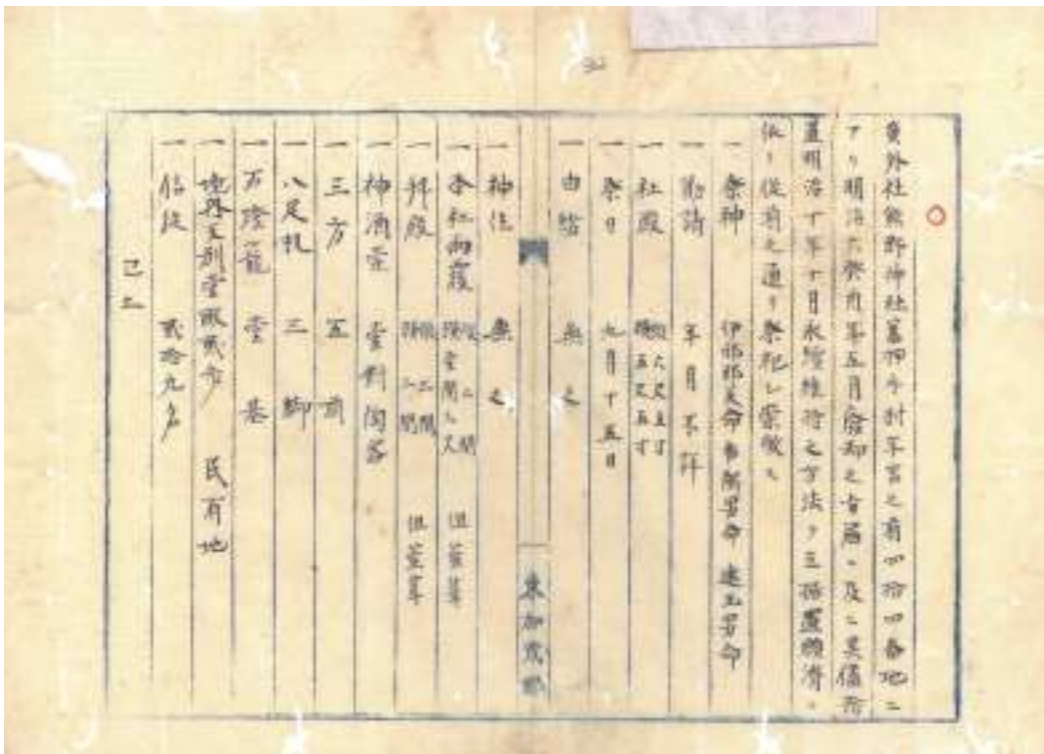 32
員外社熊野神社蓋押手村字宮之前四拾四番地ニ
アリ明治六癸酉年五月廃却之旨届ニ及ニ其儘所
置明治十年十月永続維持之方法ヲ立据置願済ニ
依リ従前之通リ祭祀シ崇敬ス
一 祭神 伊邪那美命 事解男命 速玉男命
一 勧請 年月不詳
一 社殿 縦六尺五寸 横五尺五寸
一 祭日 九月十五日
一 由緒 無之
東加茂郡
一 神位 無之
一 本社雨覆 縦二間 横壹間三尺 但萱葺
一 拝殿 縦三間 横二間 但萱葺
一 神酒壺 壹対陶器
一 三方 五前
一 八足机 三脚
一 万燈籠 壹基
一 境外 民有地
一 信徒 貳拾九名
已上